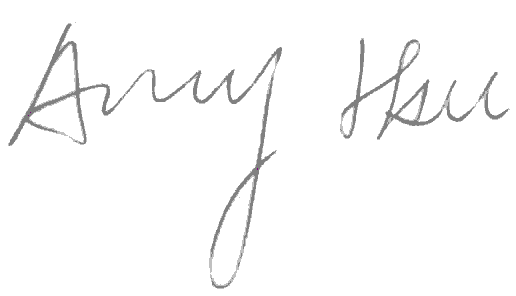 Amy Hsu